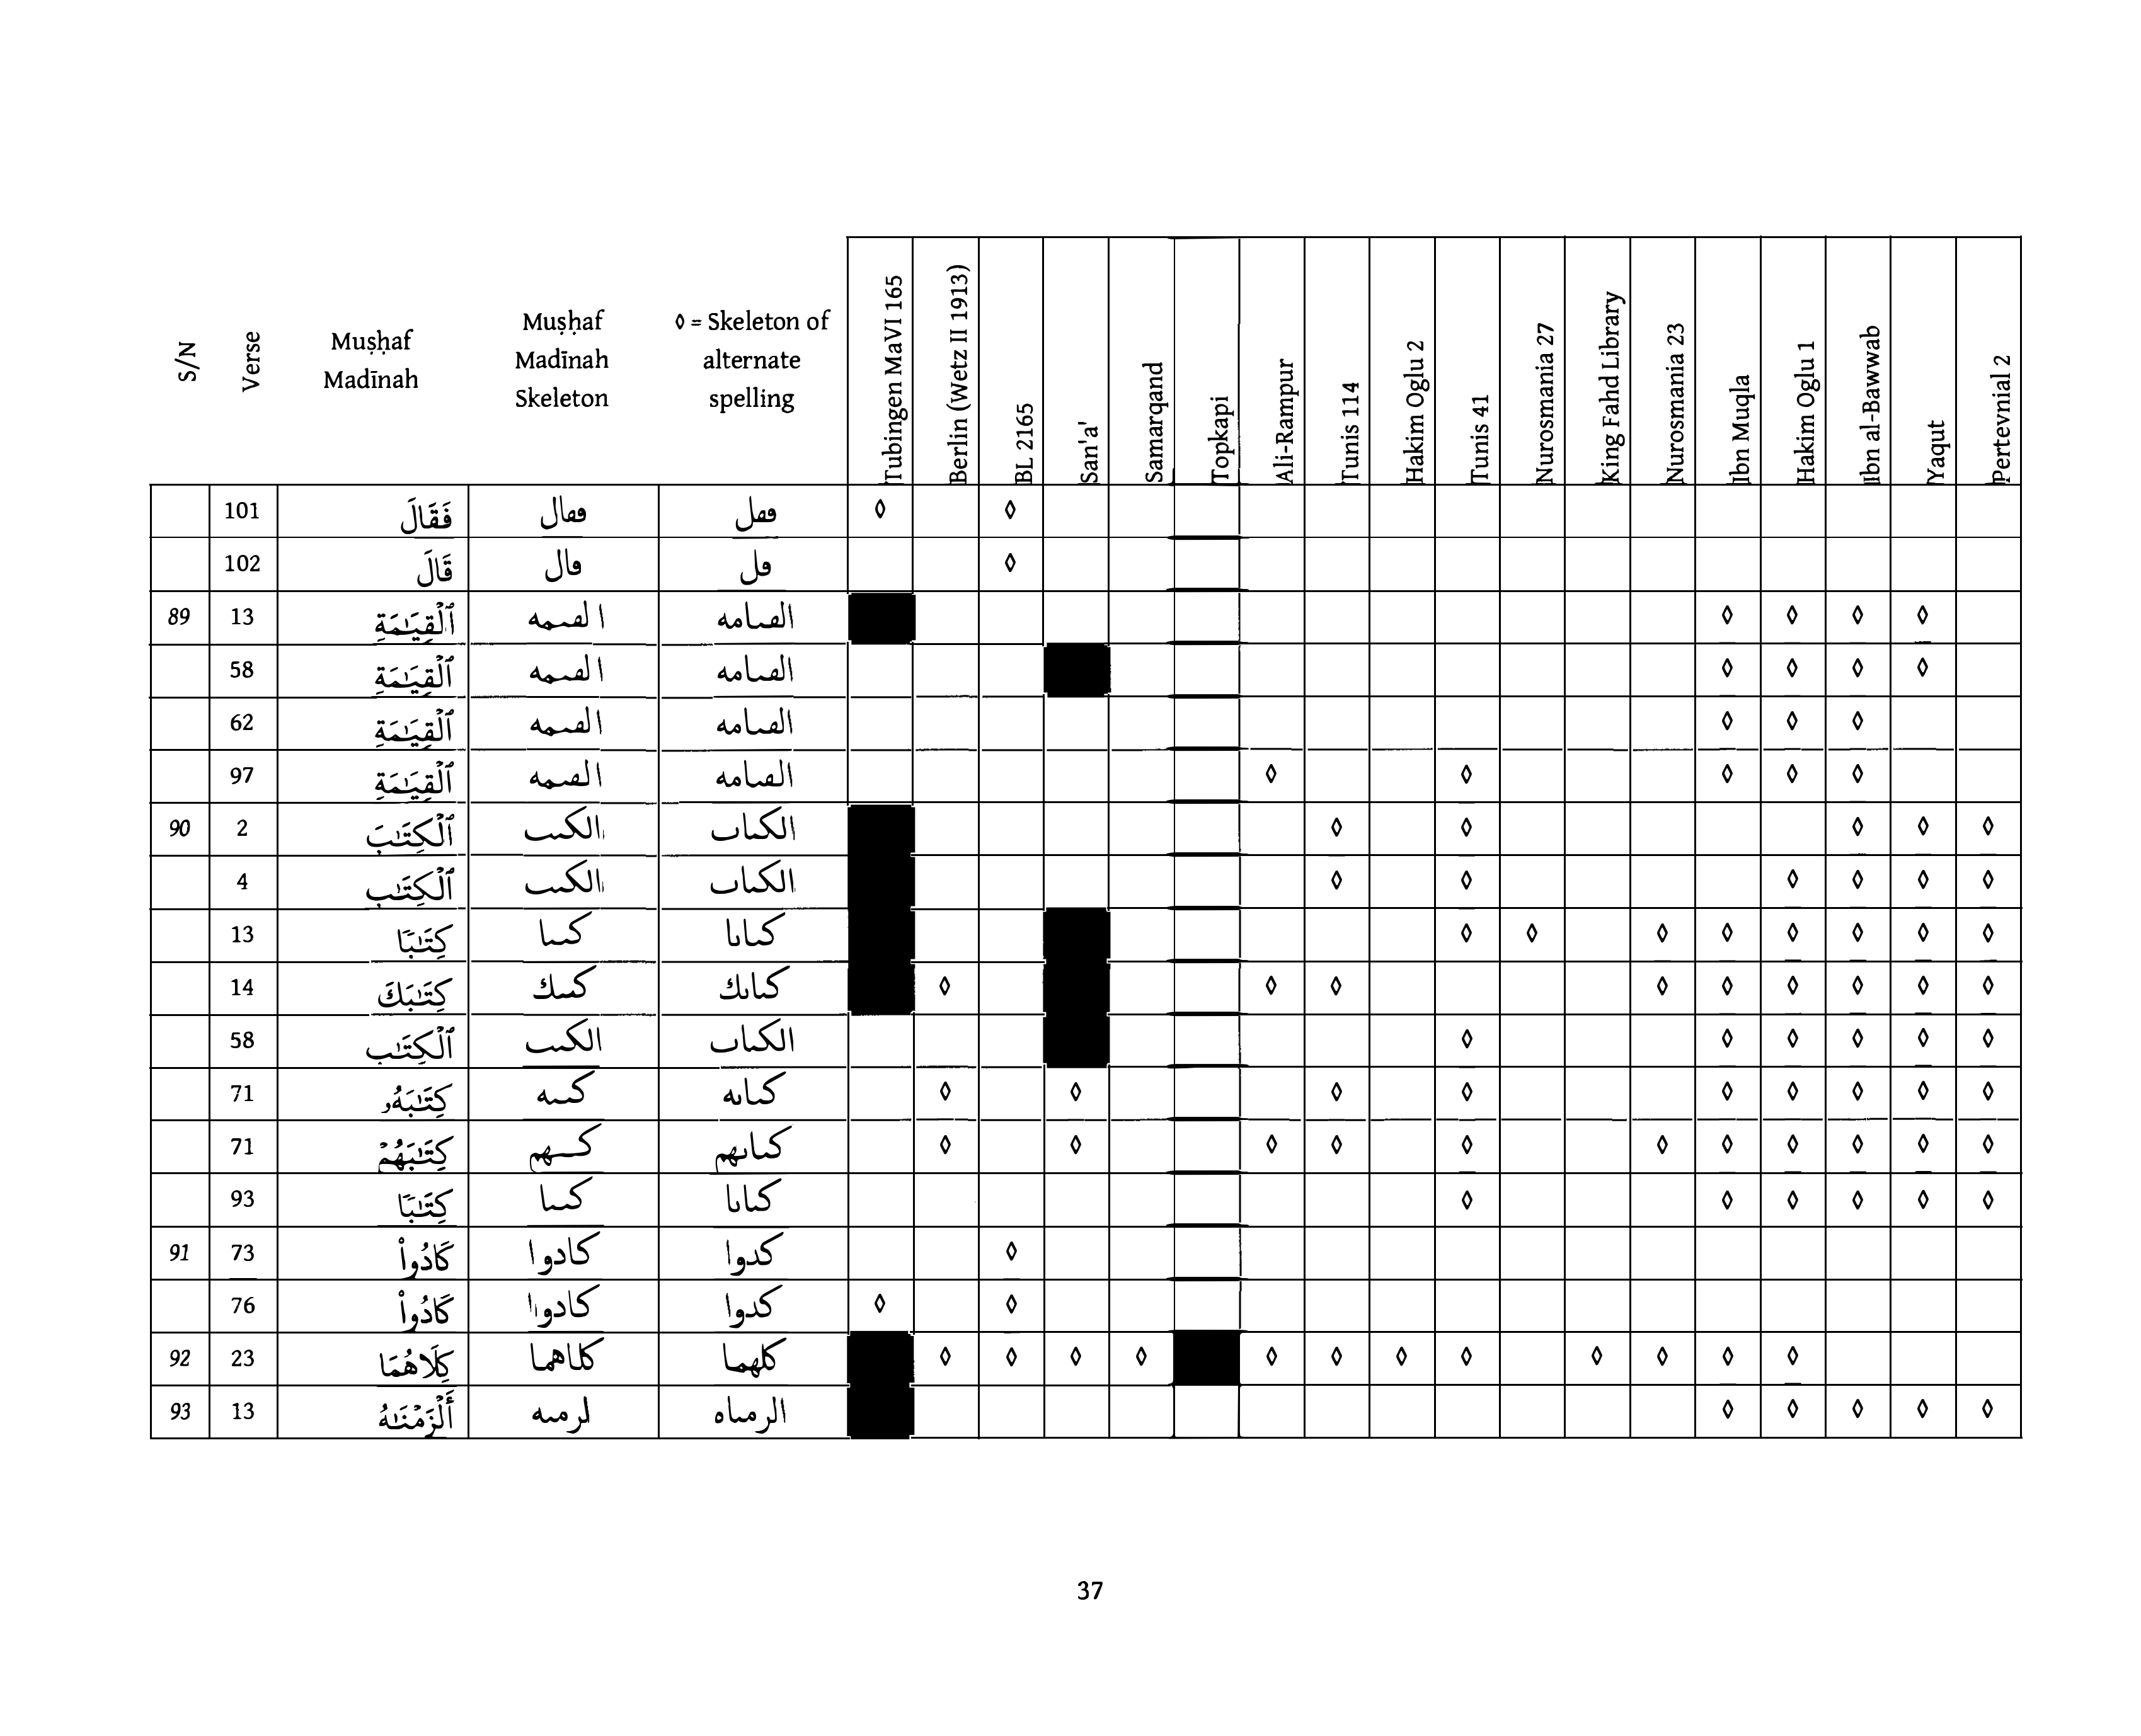 S/N | Verse | Muṣḥaf Madīnah | Muṣḥaf Madīnah Skeleton | ◊ = Skeleton of alternate spelling | Tubingen MaVI 165 | Berlin (Wetz II 1913) | BL 2165 | San'a' | Samarqand | Topkapi | Ali-Rampur | Tunis 114 | Hakim Oglu 2 | Tunis 41 | Nurosmania 27 | King Fahd Library | Nurosmania 23 | Ibn Muqla | Hakim Oglu 1 | Ibn al-Bawwab | Yaqut | Pertevnial 2
101 فَقَالَ ڡٯال ڡٯل ◊ ◊
102 قَالَ ٯال ٯل ◊
89 13 ٱلْقِيَـٰمَةِ الٯىمه الٯىامه ◊ ◊ ◊ ◊
58 ٱلْقِيَـٰمَةِ الٯىمه الٯىامه ◊ ◊ ◊ ◊
62 ٱلْقِيَـٰمَةِ الٯىمه الٯىامه ◊ ◊ ◊
97 ٱلْقِيَـٰمَةِ الٯىمه الٯىامه ◊ ◊ ◊ ◊ ◊
90 2 ٱلْكِتَـٰبَ الكىٮ الكىاٮ ◊ ◊ ◊ ◊ ◊
4 ٱلْكِتَـٰبِ الكىٮ الكىاٮ ◊ ◊ ◊ ◊ ◊ ◊
13 كِتَـٰبًا كىىا كىاىا ◊ ◊ ◊ ◊ ◊ ◊ ◊ ◊
14 كِتَـٰبَكَ كىىك كىاىك ◊ ◊ ◊ ◊ ◊ ◊ ◊ ◊ ◊
58 ٱلْكِتَـٰبِ الكىٮ الكىاٮ ◊ ◊ ◊ ◊ ◊ ◊
71 كِتَـٰبَهُۥ كىىه كىاىه ◊ ◊ ◊ ◊ ◊ ◊ ◊ ◊ ◊
71 كِتَـٰبَهُمْ كىىهم كىاىهم ◊ ◊ ◊ ◊ ◊ ◊ ◊ ◊ ◊ ◊ ◊
93 كِتَـٰبًا كىىا كىاىا ◊ ◊ ◊ ◊ ◊ ◊
91 73 كَادُوا۟ كادوا كدوا ◊
76 كَادُوا۟ كادوا كدوا ◊ ◊
92 23 كِلَاهُمَا كلاهما كلهما ◊ ◊ ◊ ◊ ◊ ◊ ◊ ◊ ◊ ◊ ◊ ◊
93 13 أَلْزَمْنَـٰهُ لرمىه الرمىاه ◊ ◊ ◊ ◊ ◊
37